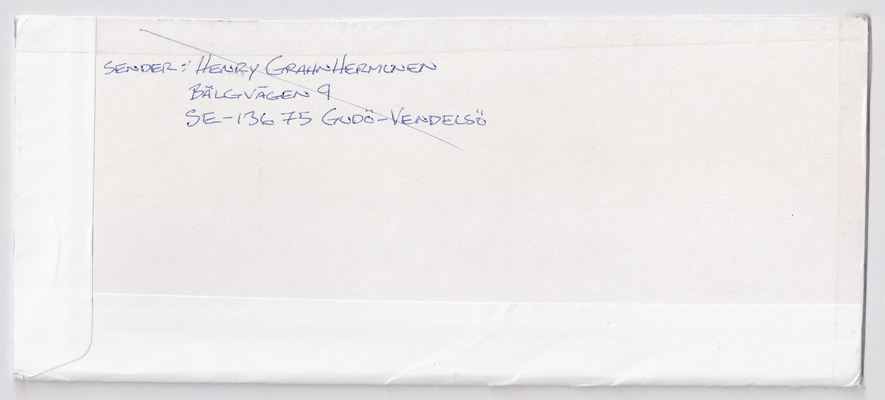 SENDER: HENRY GRAHN HERMUNEN
BÄLGVÄGEN 9
SE-136 75 GUDÖ-VENDELSÖ